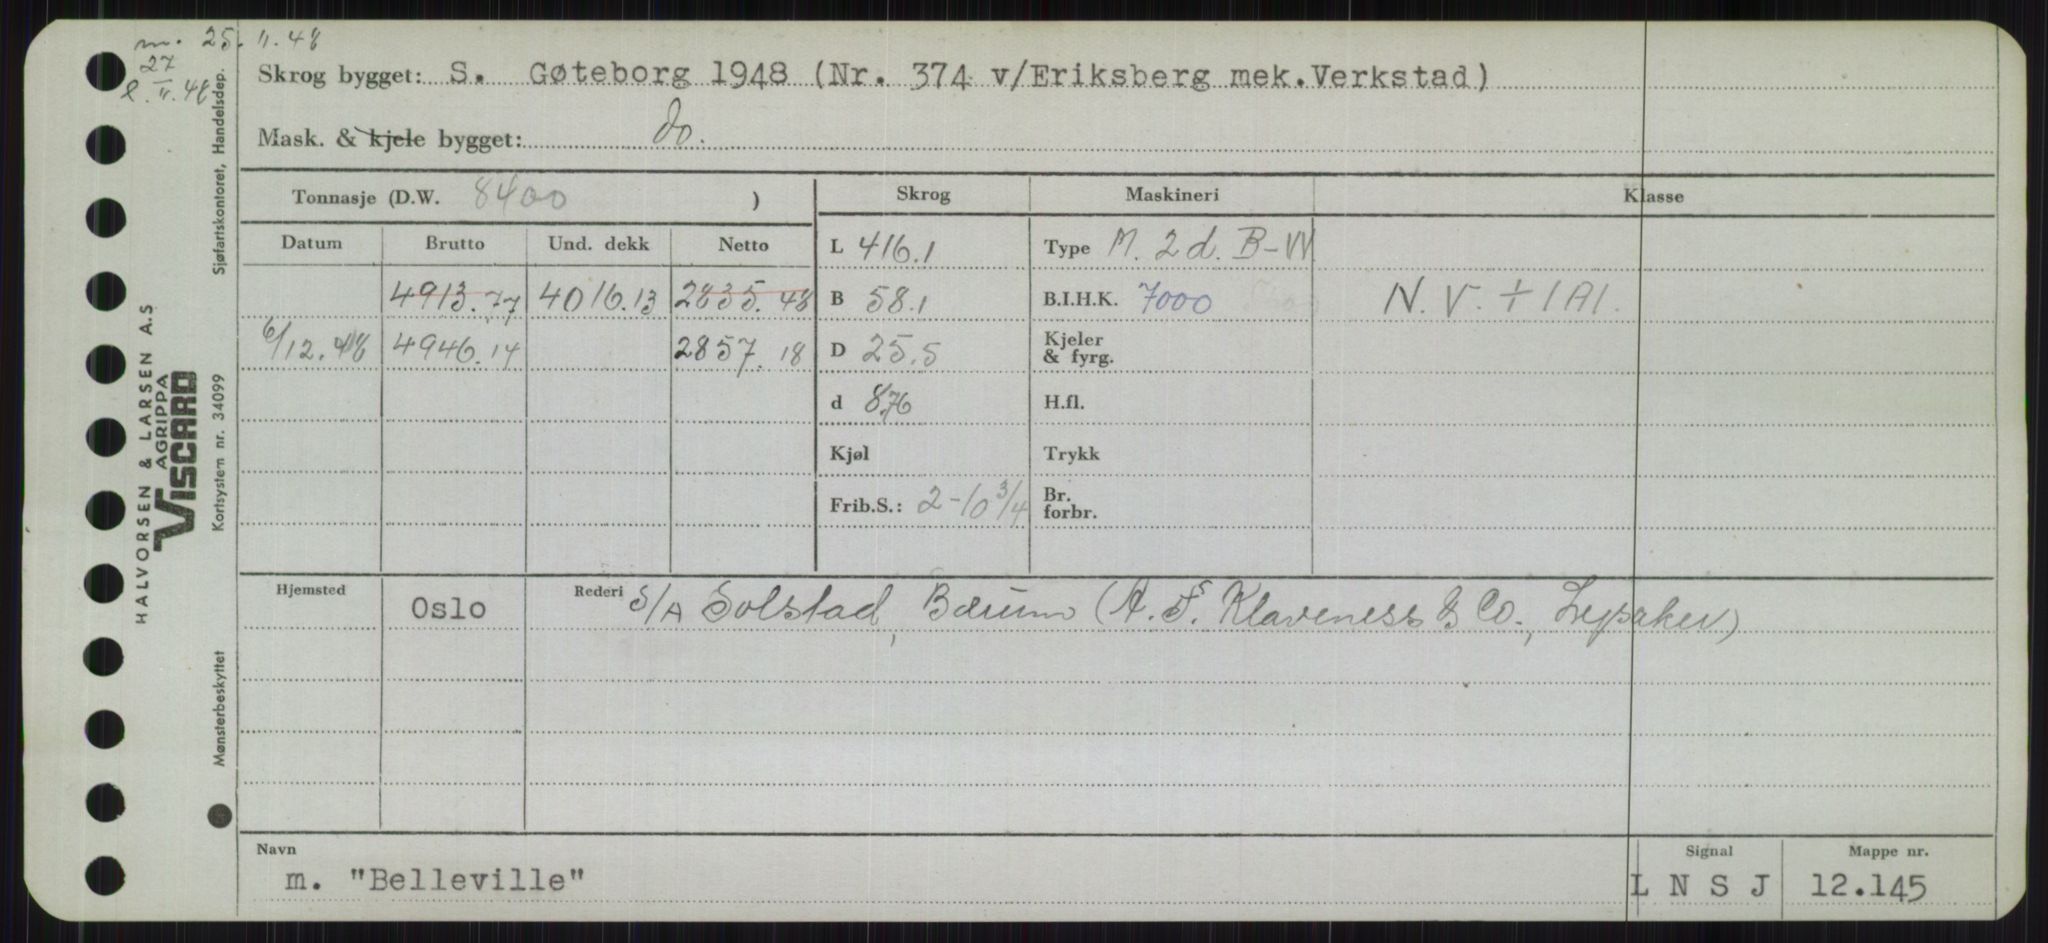 m. 25. II. 48
27
l. II. 48
Skrog bygget: S. Gøteborg 1948 (Nr. 374 v/Eriksberg mek.Verkstad)
Mask. & kjele bygget: do.
Tonnasje (D.W. 8400 )
Skrog Maskineri Klasse
Datum Brutto Und. dekk Netto
L 416.1 Type M. 2 d. B-W
4913.77 4016.13 2835.48
B 58.1 B.I.H.K. 7000 N.V. + 1A1.
6/12.48 4946.14 2857.18
D 25.5 Kjeler
& fyrg.
d 8,76 H.fl.
Kjøl Trykk
Frib.S.: 2-10 3/4 Br.
forbr.
Hjemsted Oslo Rederi S/A Solstad, Bærum (A. F. Klaveness & Co., Lysaker)
Navn
m. "Belleville"
Signal
L N S J
Mappe nr.
12.145
HALVORSEN & LARSEN A.S
AGRIPPA
VISCARD
Sjøfartskontoret, Handelsdep.
Kortsystem nr. 34099
Mønsterbeskyttet